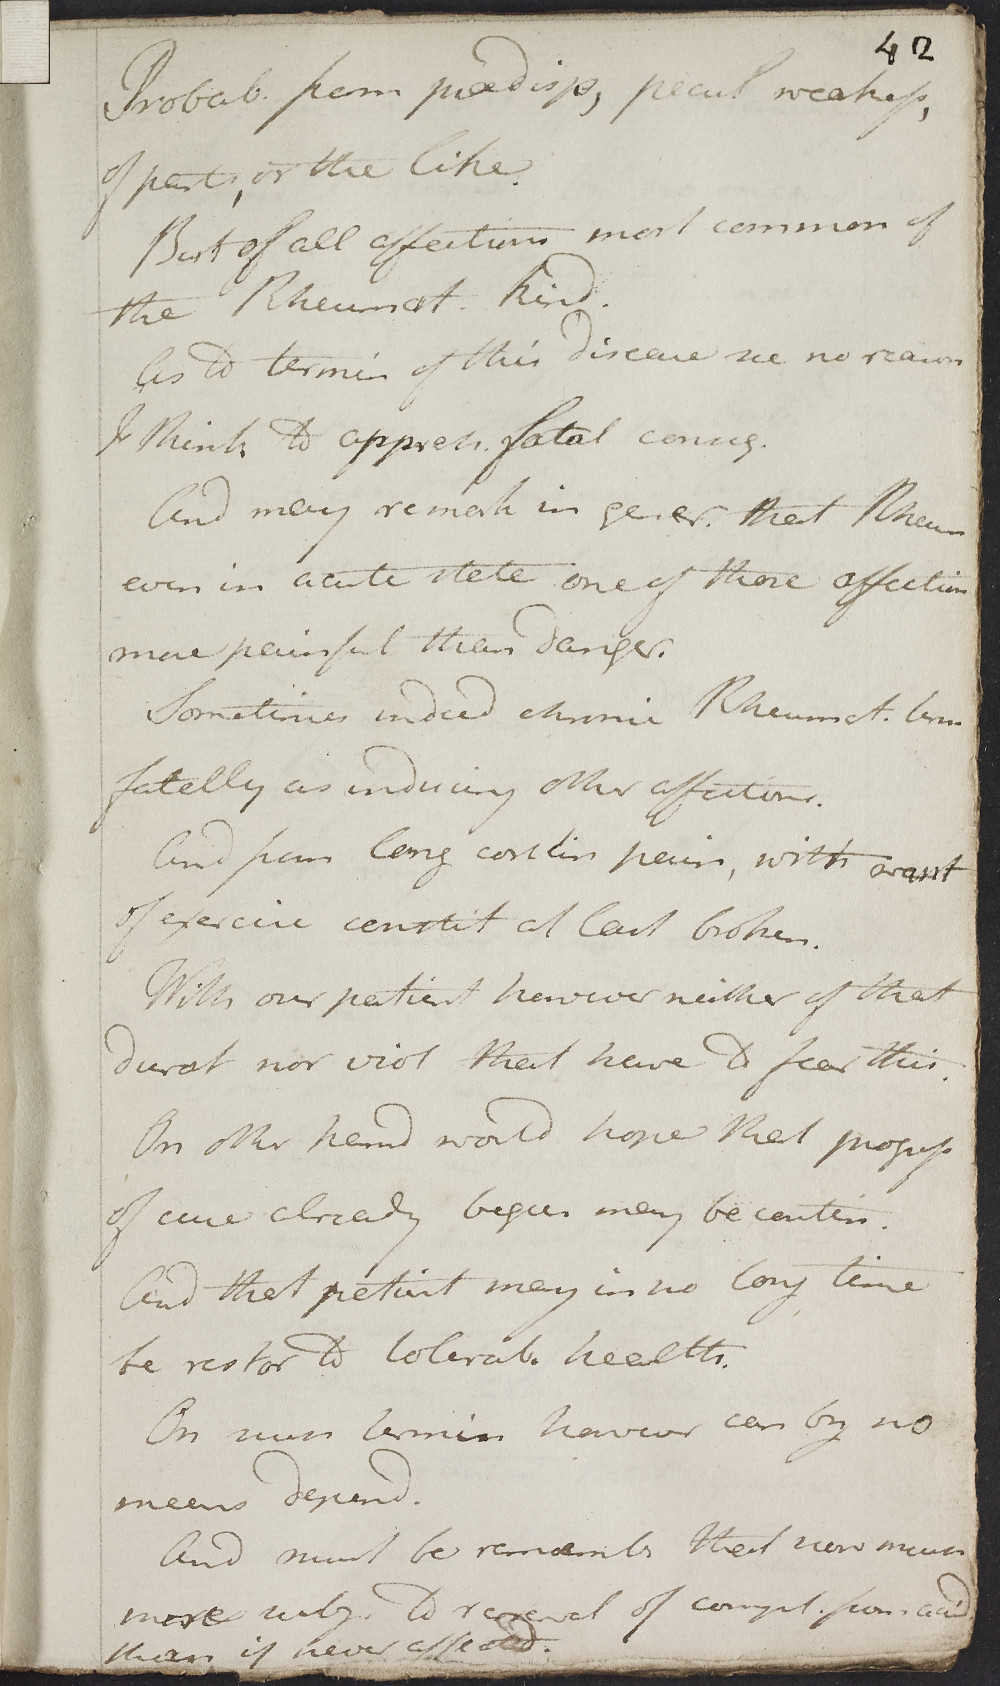 42
Probab. from prædisp, pecul weakness,
of parts, or the like.
But of all affections most common of
the Rheumat. kind.
As to termin of this disease see no reason
I think to appreh. fatal conseq.
And may remark in gener. that Rheum
even in acute state one of those affection
more painful than danger.
Sometimes indeed chronic Rheumat. term
fatally as inducing other affections.
And from long contin pain, with want
of exercise constit at last broken.
With our patient however neither of that
durat nor viol that have to fear this.
On other hand would hope that progress
of cure already begun may be contin.
And that patient may in no long time
be restor to tolerab. health.
On such termin however can by no
means depend.
And must be rememb that now much
more subj. to renewal of compl. from accid
than if never affected.